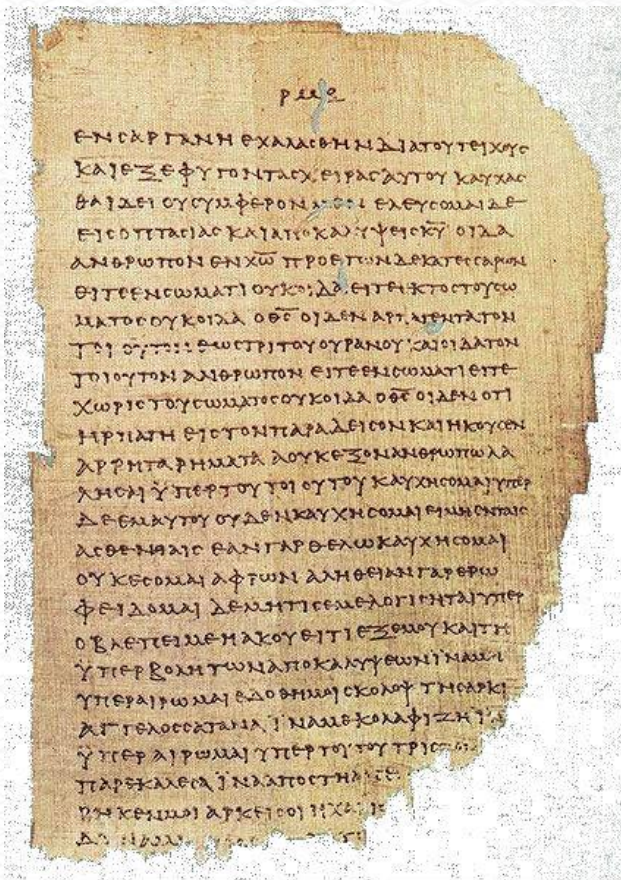 ΕΝ ϹΑΡΓΑΝΗ ΕΧΑΛΑϹΘΗΝ ΔΙΑ ΤΟΥ ΤΕΙΧΟΥϹ
ΚΑΙ ΕΞΕΦΥΓΟΝ ΤΑϹ ΧΕΙΡΑϹ ΑΥΤΟΥ ΚΑΥΧΑϹ
ΘΑΙ ΔΕΙ ΟΥ ϹΥΜΦΕΡΟΝ ΕΛΕΥϹΟΜΑΙ ΔΕ
ΕΙϹ ΟΠΤΑϹΙΑϹ ΚΑΙ ΑΠΟΚΑΛΥΨΕΙϹ Κ̅Υ̅ ΟΙΔΑ
ΑΝΘΡΩΠΟΝ ΕΝ Χ̅Ω̅ ΠΡΟ ΕΤΩΝ ΔΕΚΑΤΕϹϹΑΡΩΝ
ΕΙΤΕ ΕΝ ϹΩΜΑΤΙ ΟΥΚ ΟΙΔΑ ΕΙΤΕ ΕΚΤΟϹ ΤΟΥ ϹΩ
ΜΑΤΟϹ ΟΥΚ ΟΙΔΑ Ο Θ̅Ϲ̅ ΟΙΔΕΝ ΑΡΠΑΓΕΝΤΑ ΤΟΝ
ΤΟΙΟΥΤΟΝ ΕΩϹ ΤΡΙΤΟΥ ΟΥΡΑΝΟΥ ΚΑΙ ΟΙΔΑ ΤΟΝ
ΤΟΙΟΥΤΟΝ ΑΝΘΡΩΠΟΝ ΕΙΤΕ ΕΝ ϹΩΜΑΤΙ ΕΙΤΕ
ΧΩΡΙϹ ΤΟΥ ϹΩΜΑΤΟϹ ΟΥΚ ΟΙΔΑ Ο Θ̅Ϲ̅ ΟΙΔΕΝ ΟΤΙ
ΗΡΠΑΓΗ ΕΙϹ ΤΟΝ ΠΑΡΑΔΕΙϹΟΝ ΚΑΙ ΗΚΟΥϹΕΝ
ΑΡΡΗΤΑ ΡΗΜΑΤΑ Α ΟΥΚ ΕΞΟΝ ΑΝΘΡΩΠΩ ΛΑ
ΛΗϹΑΙ ΫΠΕΡ ΤΟΥ ΤΟΙΟΥΤΟΥ ΚΑΥΧΗϹΟΜΑΙ ΥΠΕΡ
ΔΕ ΕΜΑΥΤΟΥ ΟΥΔΕΝ ΚΑΥΧΗϹΟΜΑΙ ΕΙ ΜΗ ΕΝ ΤΑΙϹ
ΑϹΘΕΝΕΙΑΙϹ ΕΑΝ ΓΑΡ ΘΕΛΩ ΚΑΥΧΗϹΟΜΑΙ
ΟΥΚ ΕϹΟΜΑΙ ΑΦΡΩΝ ΑΛΗΘΕΙΑΝ ΓΑΡ ΕΡΩ
ΦΕΙΔΟΜΑΙ ΔΕ ΜΗ ΤΙϹ ΕΜΕ ΛΟΓΙϹΗΤΑΙ ΥΠΕΡ
Ο ΒΛΕΠΕΙ ΜΕ Η ΑΚΟΥΕΙ ΤΙ ΕΞ ΕΜΟΥ ΚΑΙ ΤΗ
ΫΠΕΡΒΟΛΗ ΤΩΝ ΑΠΟΚΑΛΥΨΕΩΝ ΪΝΑ ΜΗ
ΥΠΕΡΑΙΡΩΜΑΙ ΕΔΟΘΗ ΜΟΙ ϹΚΟΛΟΨ ΤΗ ϹΑΡΚΙ
ΑΓΓΕΛΟϹ ϹΑΤΑΝΑ ΪΝΑ ΜΕ ΚΟΛΑΦΙΖΗ Ϊ
ΫΠΕΡΑΙΡΩΜΑΙ ΥΠΕΡ ΤΟΥΤΟΥ ΤΡΙϹ
ΠΑΡΕΚΑΛΕϹΑ ΪΝΑ ΑΠΟϹΤΗ
ΡΗΚΕΝ ΜΟΙ ΑΡΚΕΙ ϹΟΙ Η ΧΑΡΙϹ